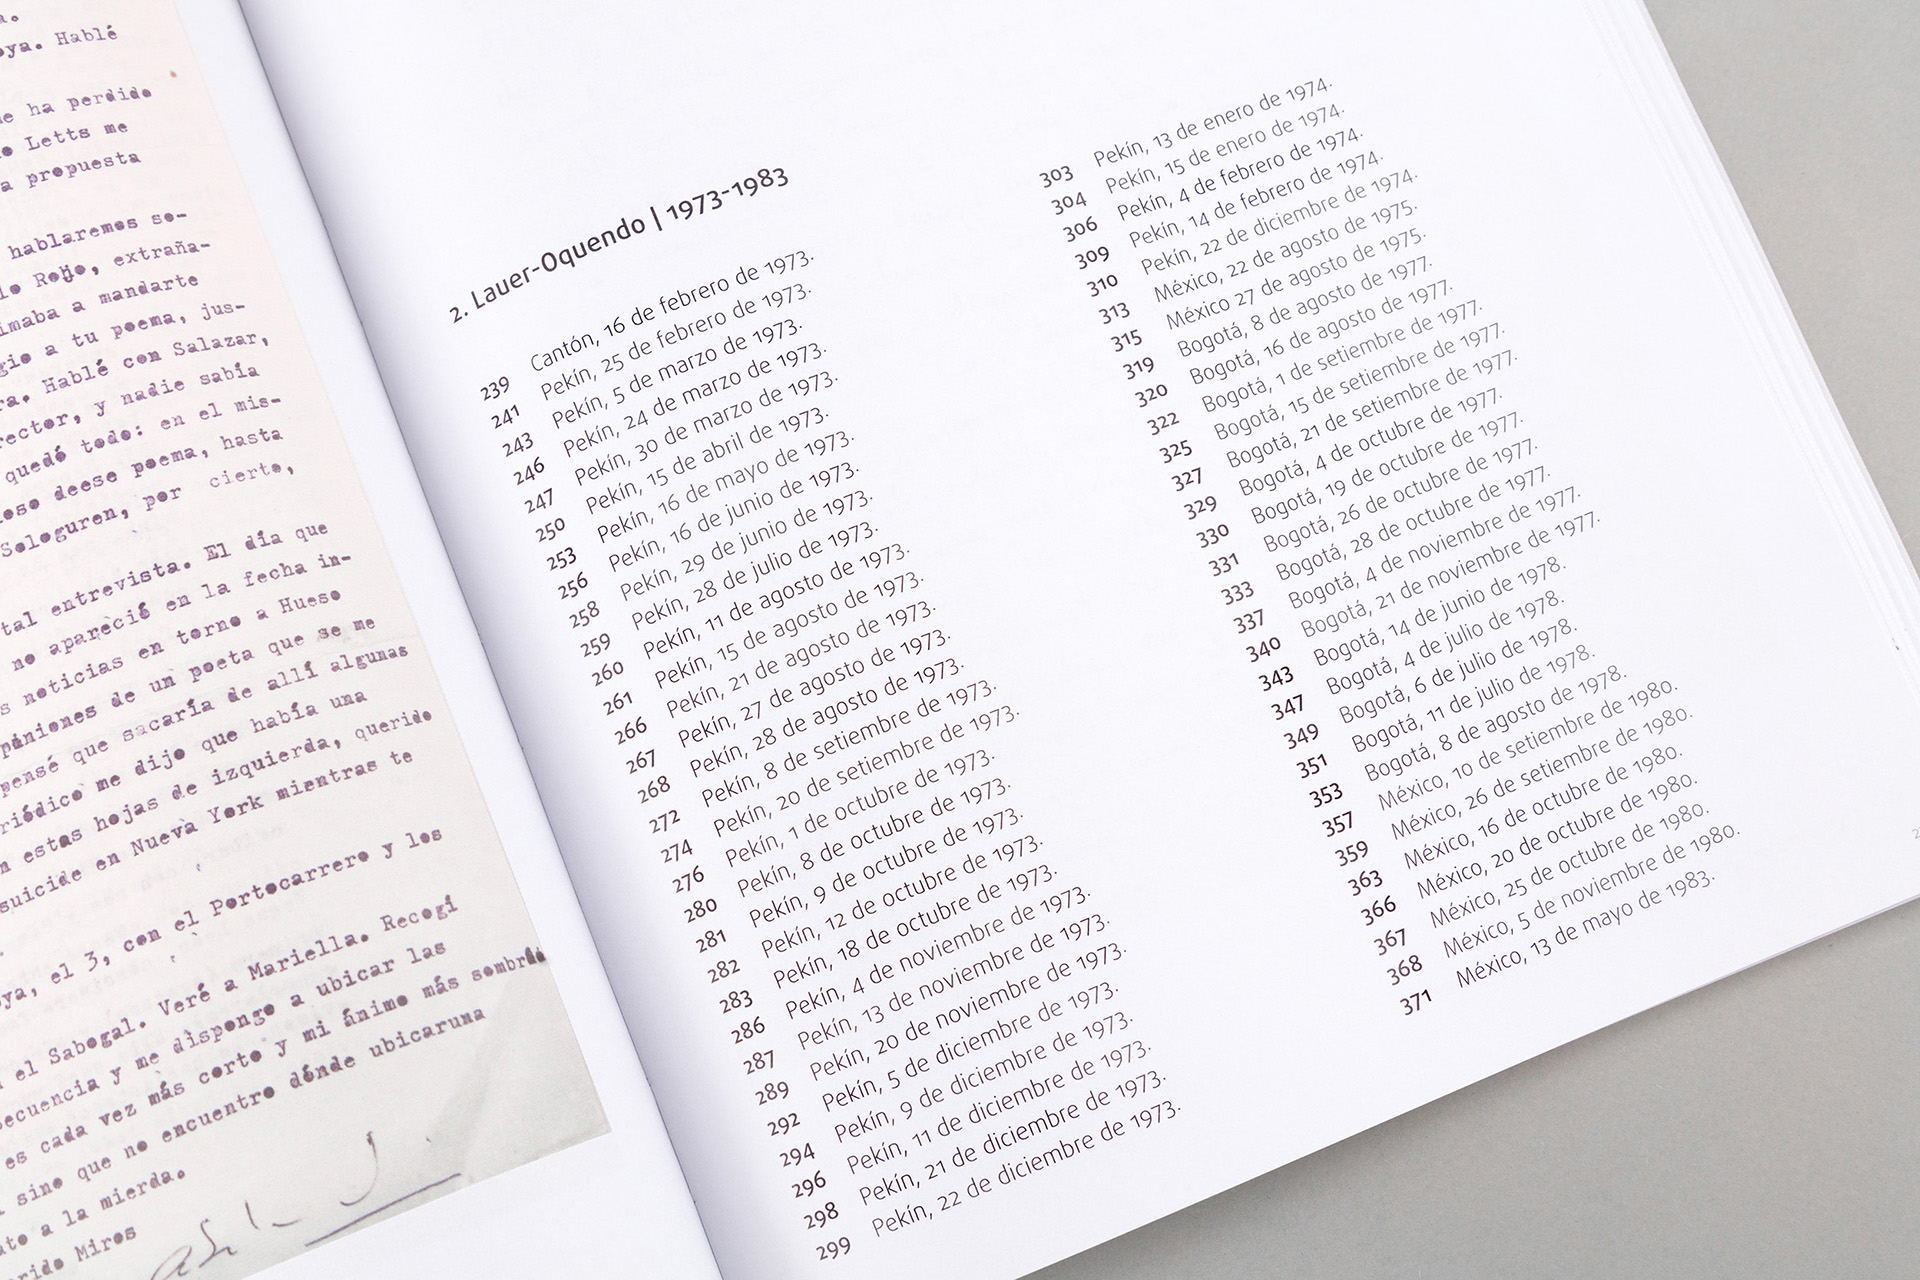 a.
oya. Hablé
e ha perdido
o Letts me
a propuesta
hablaremos se-
lo Rojo, extraña-
imaba a mandarte
gio a tu poema, jus-
ra. Hablé con Salazar,
rector, y nadie sabía
quedó todo: en el mis-
oso deese poema, hasta
Sologuren, por cierto,
tal entrevista. El día que
no apareció en la fecha in-
s noticias en torno a Hueso
piniones de un poeta que se me
pensé que sacaría de allí algunas
riódico me dijo que había una
n estas hojas de izquierda, querido
suicide en Nueva York mientras te
oya, el 3, con el Portocarrero y los
n el Sabogal. Veré a Mariella. Recogí
ecuencia y me dispongo a ubicar las
es cada vez más corto y mi ánimo más sombrío
sino que no encuentro dónde ubicaruna
ato a la mierda.
rido Miros
2. Lauer-Oquendo | 1973-1983
239 Cantón, 16 de febrero de 1973.
241 Pekín, 25 de febrero de 1973.
243 Pekín, 5 de marzo de 1973.
246 Pekín, 24 de marzo de 1973.
247 Pekín, 30 de marzo de 1973.
250 Pekín, 15 de abril de 1973.
253 Pekín, 16 de mayo de 1973.
256 Pekín, 16 de junio de 1973.
258 Pekín, 29 de junio de 1973.
259 Pekín, 28 de julio de 1973.
260 Pekín, 11 de agosto de 1973.
261 Pekín, 15 de agosto de 1973.
266 Pekín, 21 de agosto de 1973.
267 Pekín, 27 de agosto de 1973.
268 Pekín, 28 de agosto de 1973.
272 Pekín, 8 de setiembre de 1973.
274 Pekín, 20 de setiembre de 1973.
276 Pekín, 1 de octubre de 1973.
280 Pekín, 8 de octubre de 1973.
281 Pekín, 9 de octubre de 1973.
282 Pekín, 12 de octubre de 1973.
283 Pekín, 18 de octubre de 1973.
286 Pekín, 4 de noviembre de 1973.
287 Pekín, 13 de noviembre de 1973.
289 Pekín, 20 de noviembre de 1973.
292 Pekín, 5 de diciembre de 1973.
294 Pekín, 9 de diciembre de 1973.
296 Pekín, 11 de diciembre de 1973.
298 Pekín, 21 de diciembre de 1973.
299 Pekín, 22 de diciembre de 1973.
303 Pekín, 13 de enero de 1974.
304 Pekín, 15 de enero de 1974.
306 Pekín, 4 de febrero de 1974.
309 Pekín, 14 de febrero de 1974.
310 Pekín, 22 de diciembre de 1974.
313 México, 22 de agosto de 1975.
315 México 27 de agosto de 1975.
319 Bogotá, 8 de agosto de 1977.
320 Bogotá, 16 de agosto de 1977.
322 Bogotá, 1 de setiembre de 1977.
325 Bogotá, 15 de setiembre de 1977.
327 Bogotá, 21 de setiembre de 1977.
329 Bogotá, 4 de octubre de 1977.
330 Bogotá, 19 de octubre de 1977.
331 Bogotá, 26 de octubre de 1977.
333 Bogotá, 28 de octubre de 1977.
337 Bogotá, 4 de noviembre de 1977.
340 Bogotá, 21 de noviembre de 1977.
343 Bogotá, 14 de junio de 1978.
347 Bogotá, 4 de julio de 1978.
349 Bogotá, 6 de julio de 1978.
351 Bogotá, 11 de julio de 1978.
353 Bogotá, 8 de agosto de 1978.
357 México, 10 de setiembre de 1980.
359 México, 26 de setiembre de 1980.
363 México, 16 de octubre de 1980.
366 México, 20 de octubre de 1980.
367 México, 25 de octubre de 1980.
368 México, 5 de noviembre de 1980.
371 México, 13 de mayo de 1983.